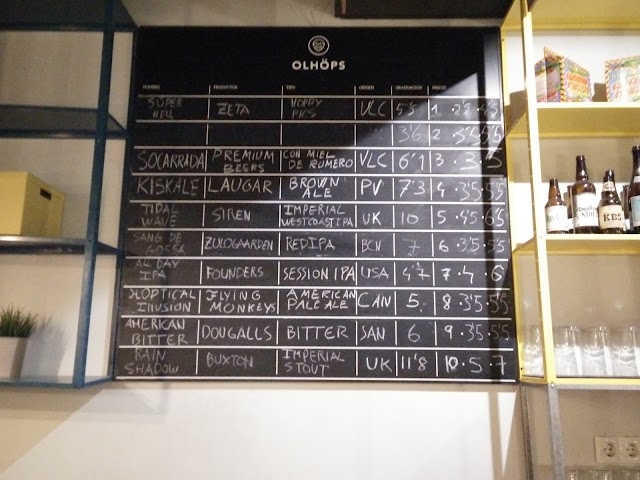 OLHÖPS
NOMBRE PRODUCTOR TIPO ORIGEN GRADUACIÓN PRECIO
SUPER HELL ZETA HOPPY PILS VLC 5'5 1. 2'5. 4'5
3'6 2. 3'5. 5'5
SOCARRADA PREMIUM BEERS CON MIEL DE ROMERO VLC 6'1 3. 3'5
KISKALE LAUGAR BROWN ALE PV 7'3 4. 3'5. 5'5
TIDAL WAVE SIREN IMPERIAL WESTCOAST IPA UK 10 5. 4'5. 6'5
SANG DE GOSSA ZULOGAARDEN RED IPA BCN 7 6. 3'5. 5'5
ALL DAY IPA FOUNDERS SESSION IPA USA 4'7 7. 4. 6
OPTICAL ILLUSION FLYING MONKEYS AMERICAN PALE ALE CAN 5 8. 3'5. 5'5
AMERICAN BITTER DOUGALLS BITTER SAN 6 9. 3'5. 5'5
RAIN SHADOW BUXTON IMPERIAL STOUT UK 11'8 10. 5. 7
KBS